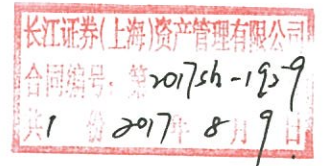 长江证券(上海)资产管理有限公司
合同编号：第2017sh-1929
共1 份 2017年 8月 9日